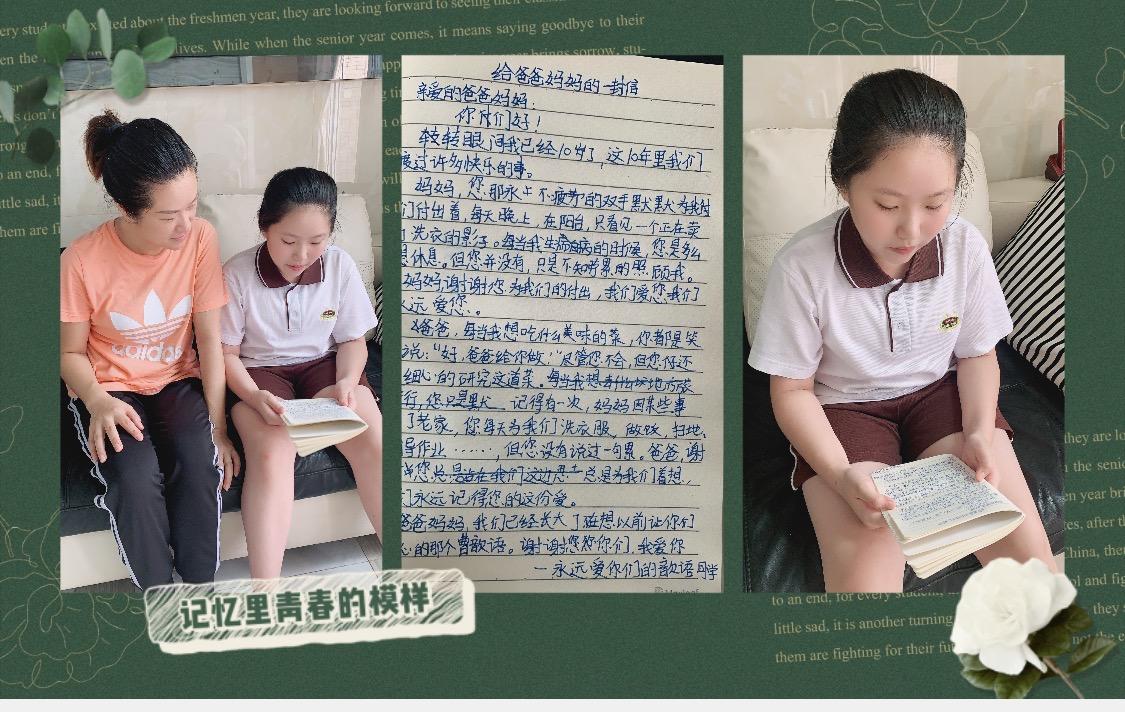 ery stu
ed about the freshmen year, they are looking forward to seeing their
lives. While when the senior year comes, it means saying goodbye to their
brings sorrow, stu-
给爸爸妈妈的一封信
亲爱的爸爸妈妈:
你们好!
转转眼间我已经10岁了,这10年里我们
度过许多快乐的事。
妈妈,您那永上不疲劳的双手默默为我
们付出着,每天晚上,在阳台,只看见一个正在
洗衣的影子。每当我生病的时候,您是多么
休息。但您并没有,只是不知劳累的照顾我。
妈妈,谢谢您为我们的付出,我们爱您,我们
永远爱您。
爸爸,每当我想吃什么美味的菜,你都是笑
说:“好,爸爸给你做。”尽管您不会,但您仔还
细心的研究这道菜。每当我想去什么地方旅
行,您只是默 记得有一次,妈妈因某些事
了老家,您每天为我们洗衣服、做饭、扫地、
导作业……,但您没有说过一句累。爸爸,谢
您总是站在我们这边 总是为我们着想,
们永远记得您的这份爱。
爸爸妈妈,我们已经长大了 想以前让你们
心的那个曹歌语。谢谢您 你们,我爱你
—永远爱你们的歌语同学
adidas
记忆里青春的模样
they are lo
the senio
en year bri
es, after th
China, the
ol and fig
to an end, for every
little sad, it is another turning
them are fighting for their fu
they s
not the e